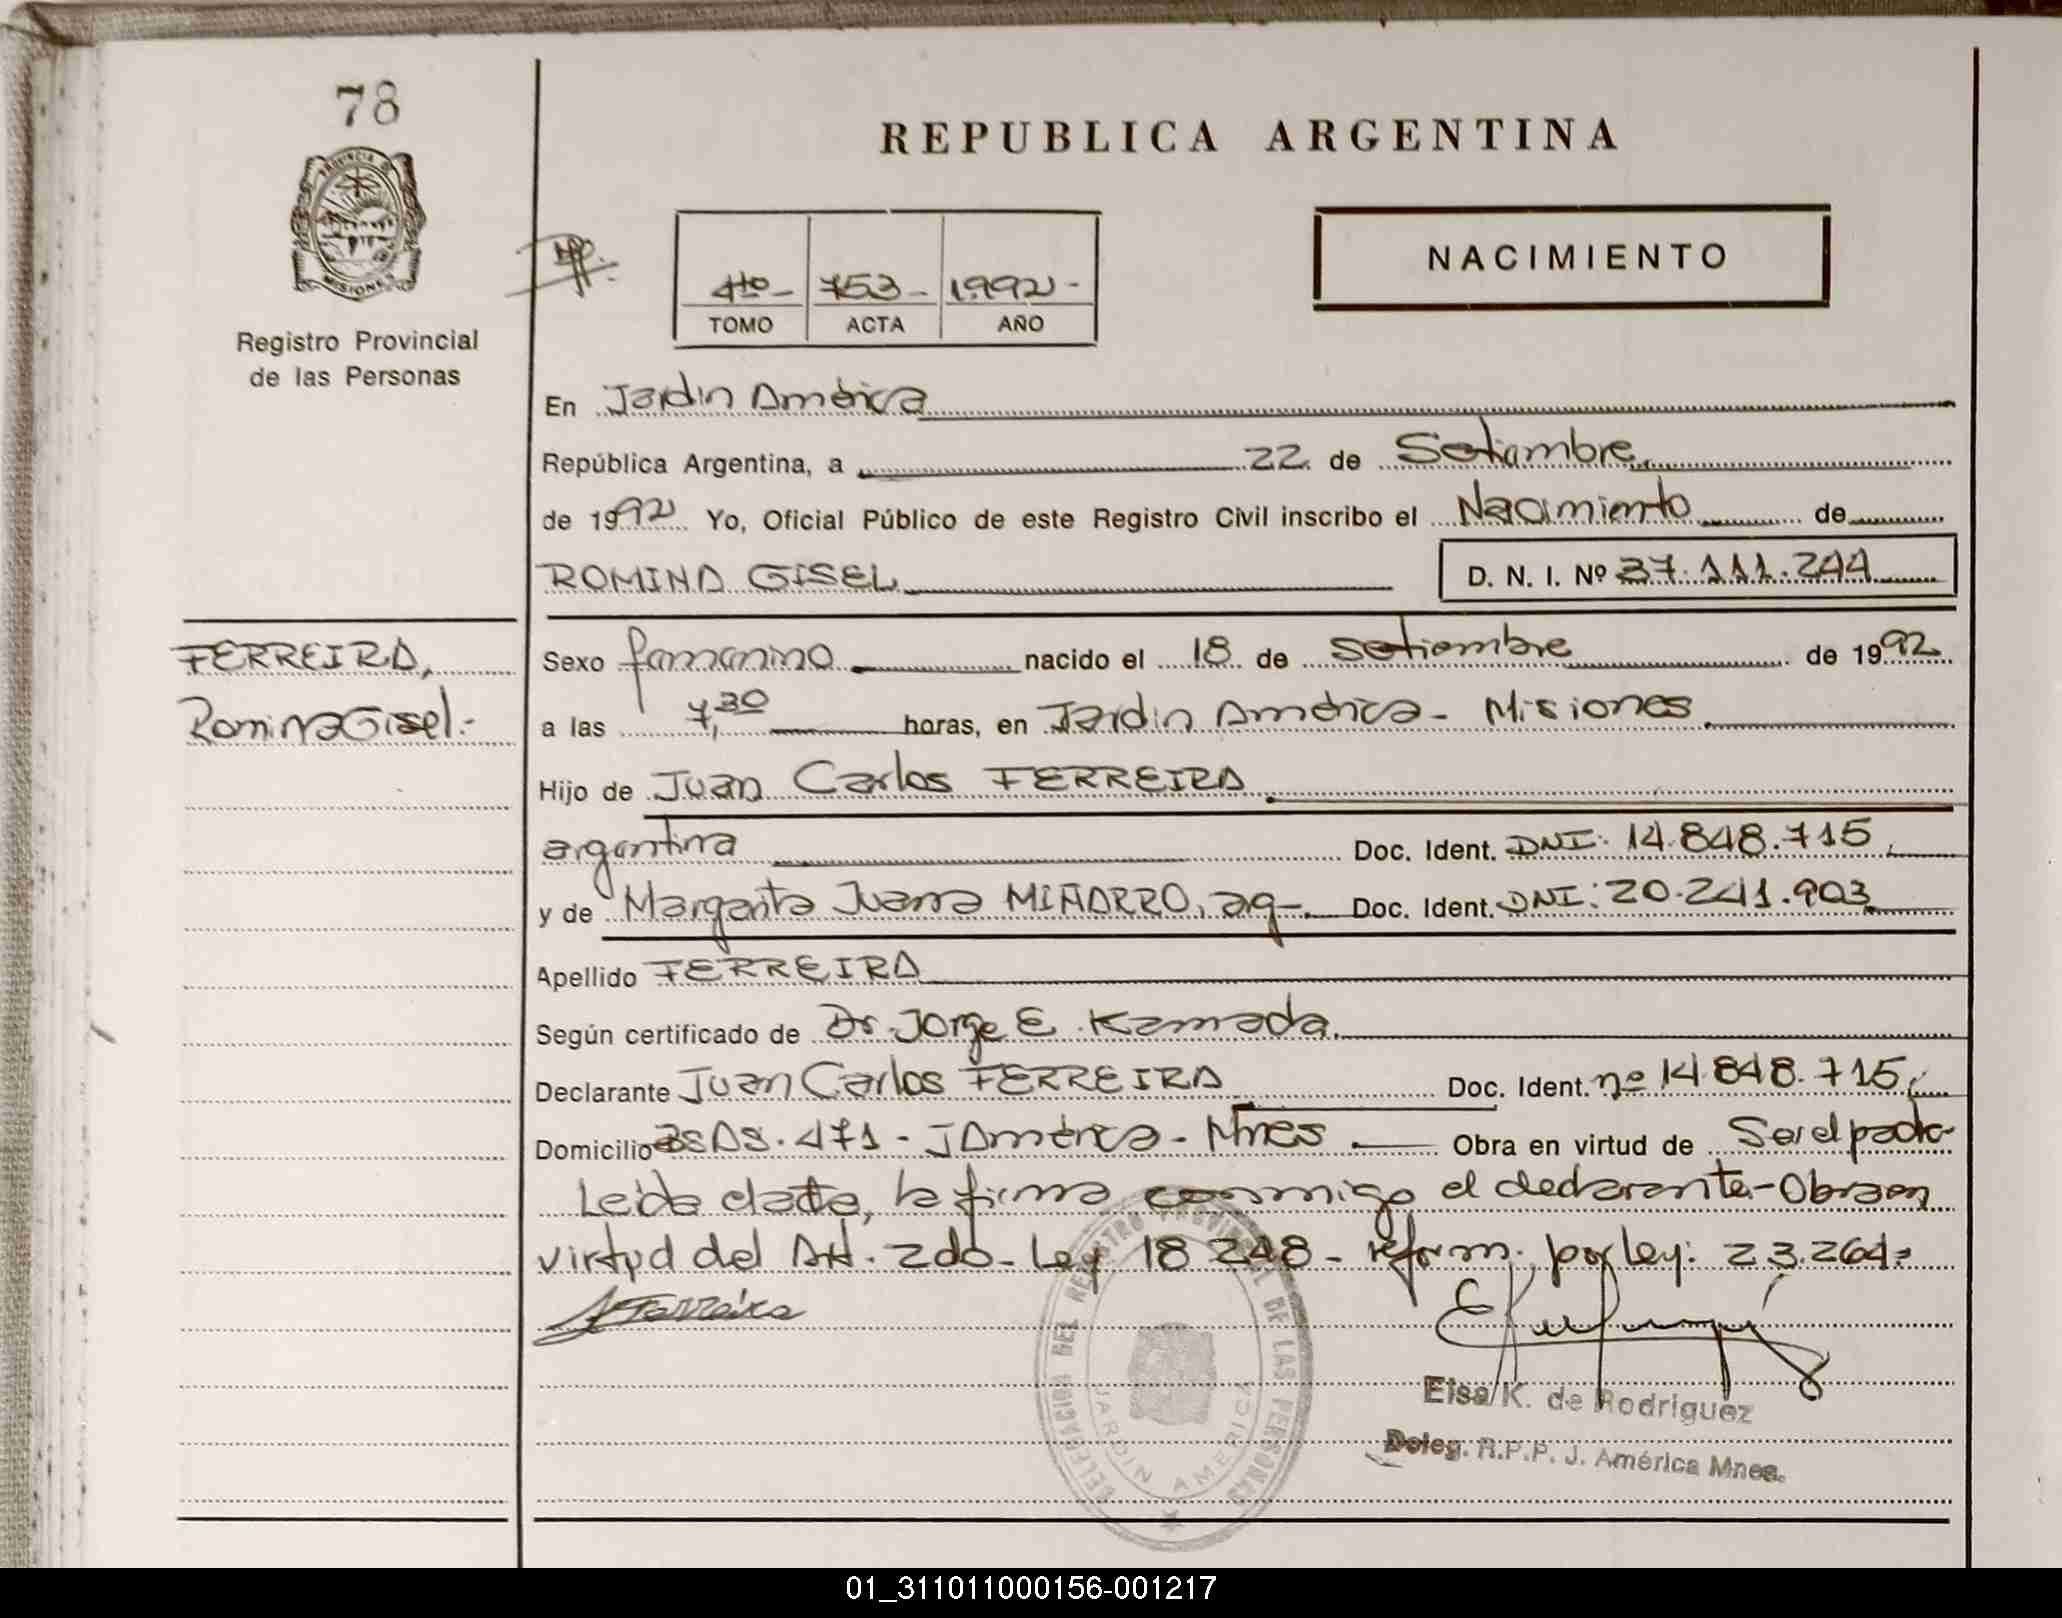 78
PROVINCIA DE
MISIONES
Registro Provincial
de las Personas
REPUBLICA ARGENTINA
NACIMIENTO
4to- 753- 1992-
TOMO ACTA AÑO
En Jardin América
República Argentina, a 22 de Setiembre
de 1992 Yo, Oficial Público de este Registro Civil inscribo el Nacimiento de
ROMINA GISEL D. N. I. Nº 37.111.244
FERREIRA,
Romina Gisel.-
Sexo femenino nacido el 18 de setiembre de 1992
a las 7,30 horas, en Jardin América - Misiones
Hijo de Juan Carlos FERREIRA
argentina Doc. Ident. DNI: 14.848.715
y de Margarita Juana MIÑARRO, arg-. Doc. Ident. DNI: 20.241.903
Apellido FERREIRA
Según certificado de Dr. Jorge E. Kamada.
Declarante Juan Carlos FERREIRA Doc. Ident. nº 14.848.715
Domicilio BsAs. 471 - JAmérica - Mnes Obra en virtud de Ser el padre
Leida el acta, la firma conmigo el declarante-Obra en
virtud del Art. 2do- Ley 18 248 - reform. por ley: 23.264=
Ferreira
Elsa K. de Rodriguez
Deleg. R.P.P. J. América Mnes.
DELEGACION DEL REGISTRO PROVINCIAL DE LAS PERSONAS
JARDIN AMERICA
01_311011000156-001217